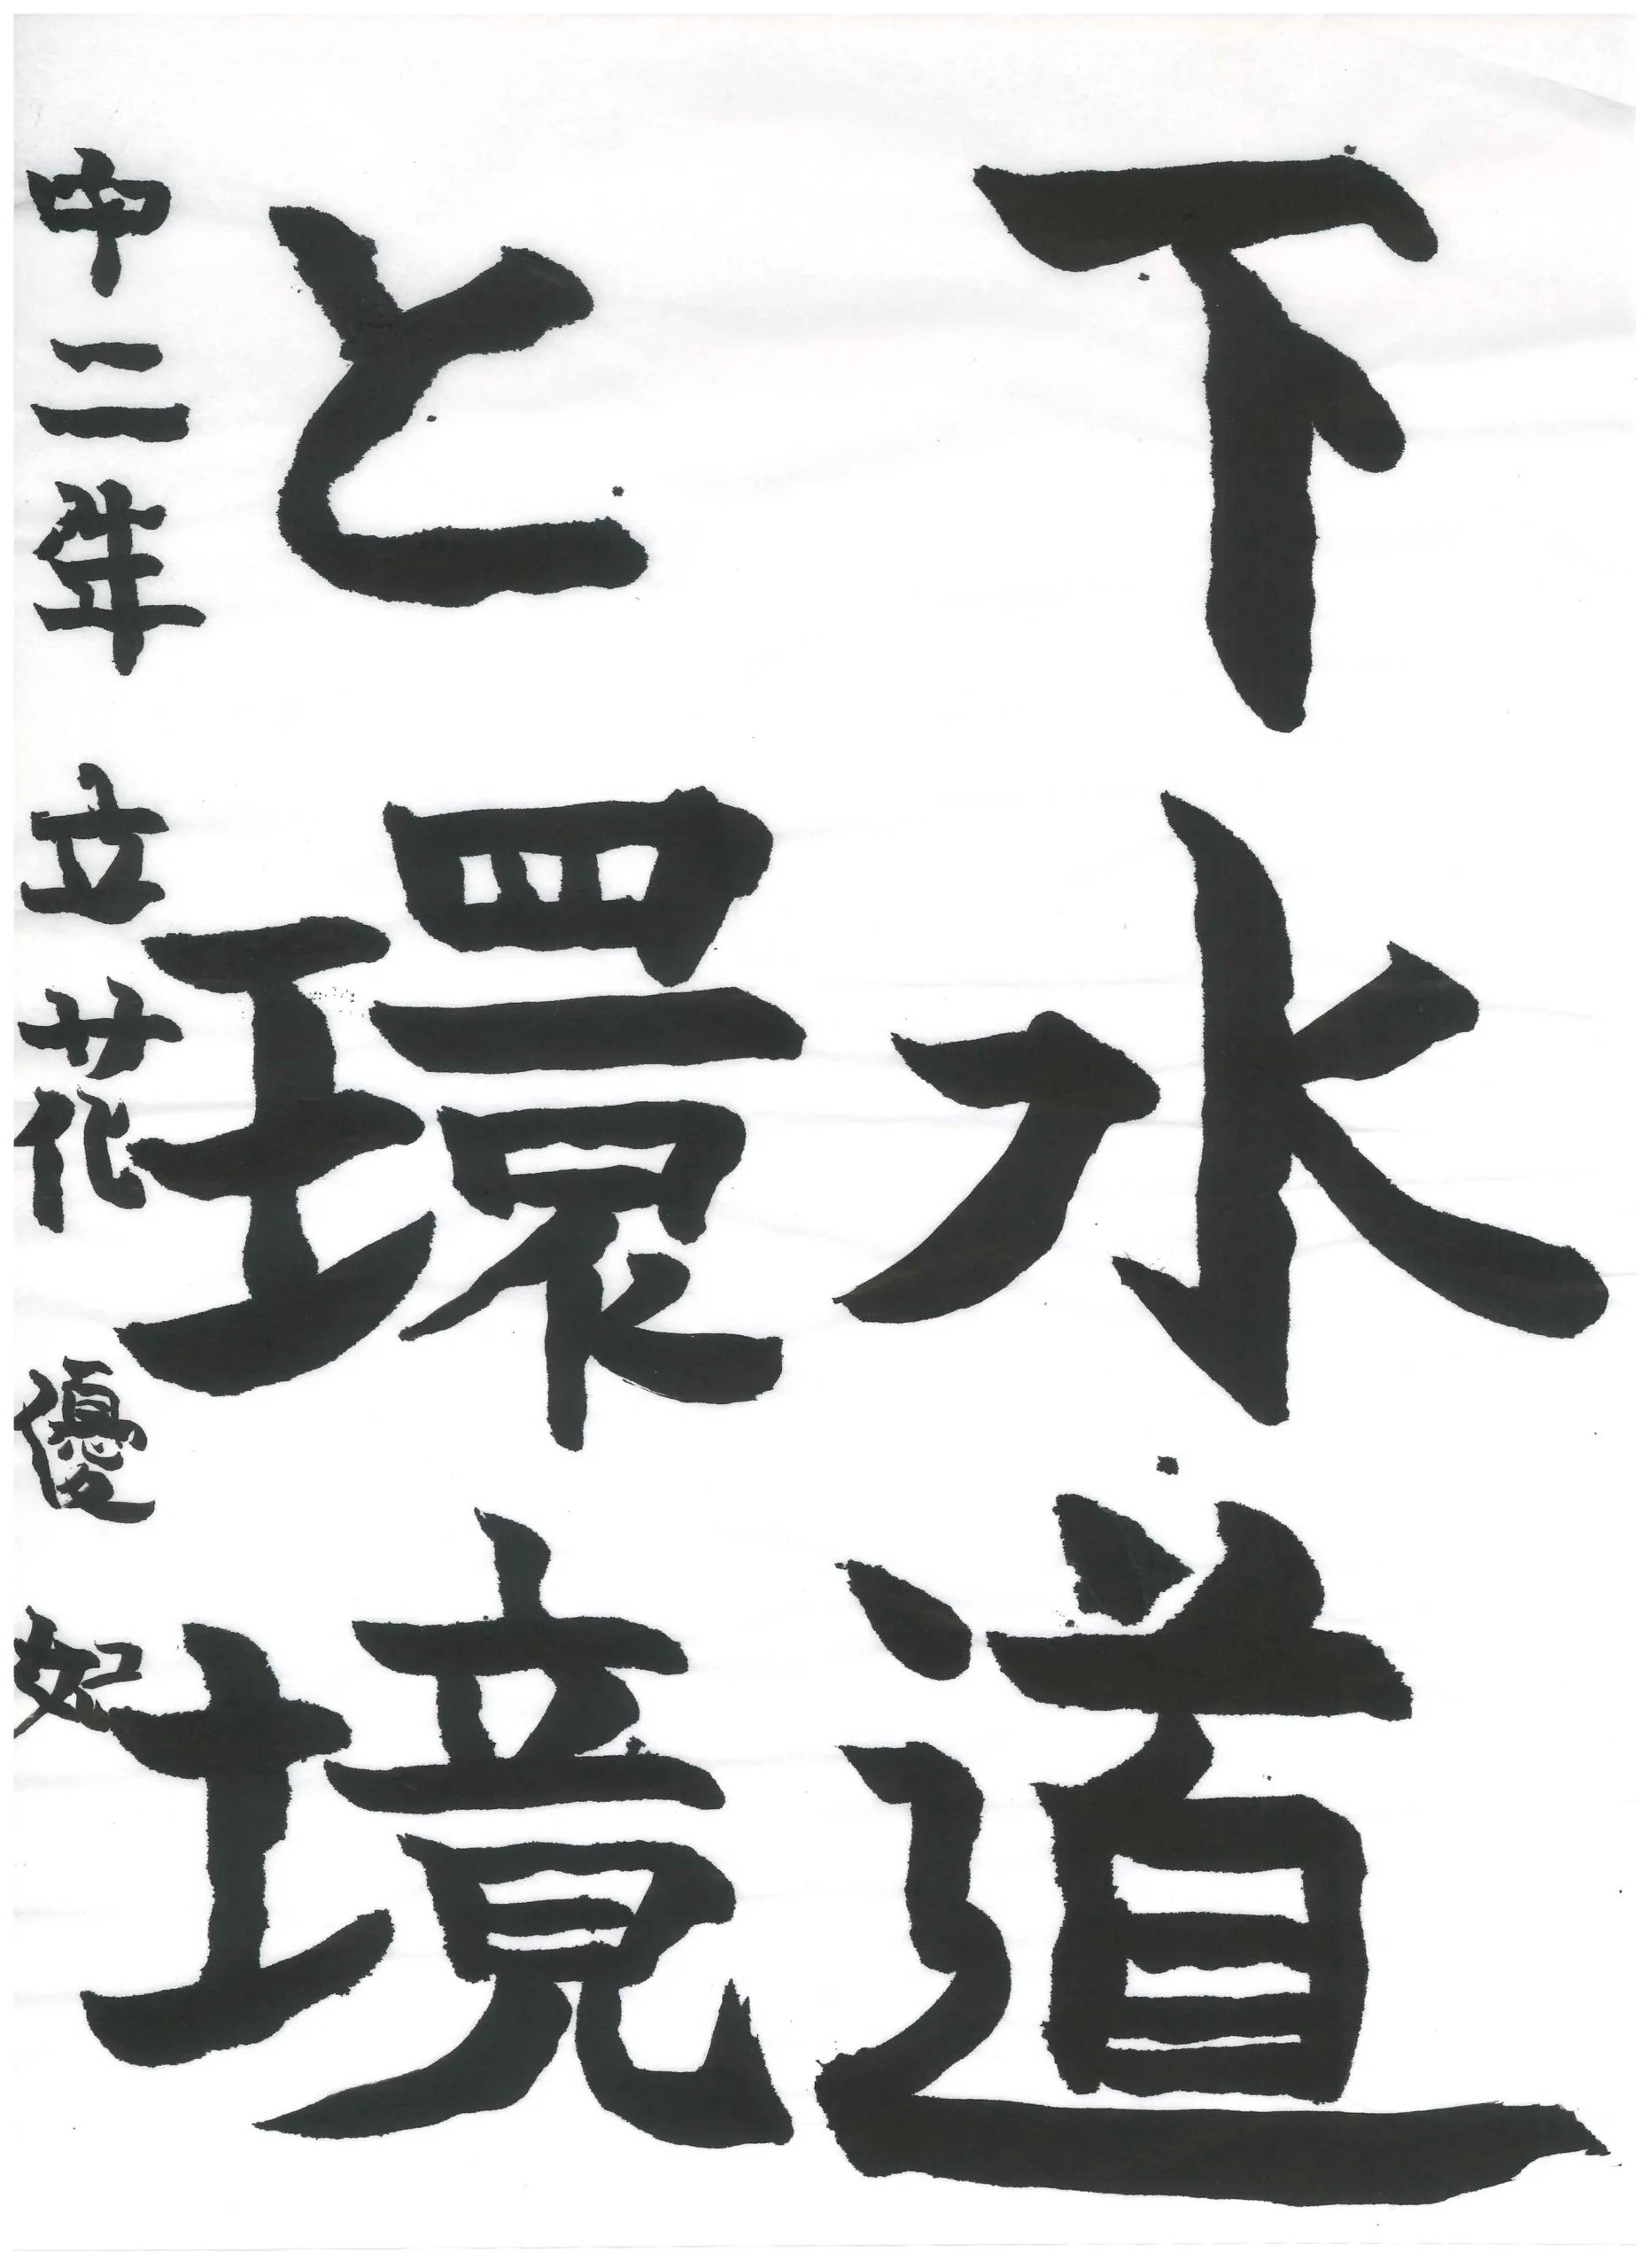 下水道
と環境
中二年 立花 優妃